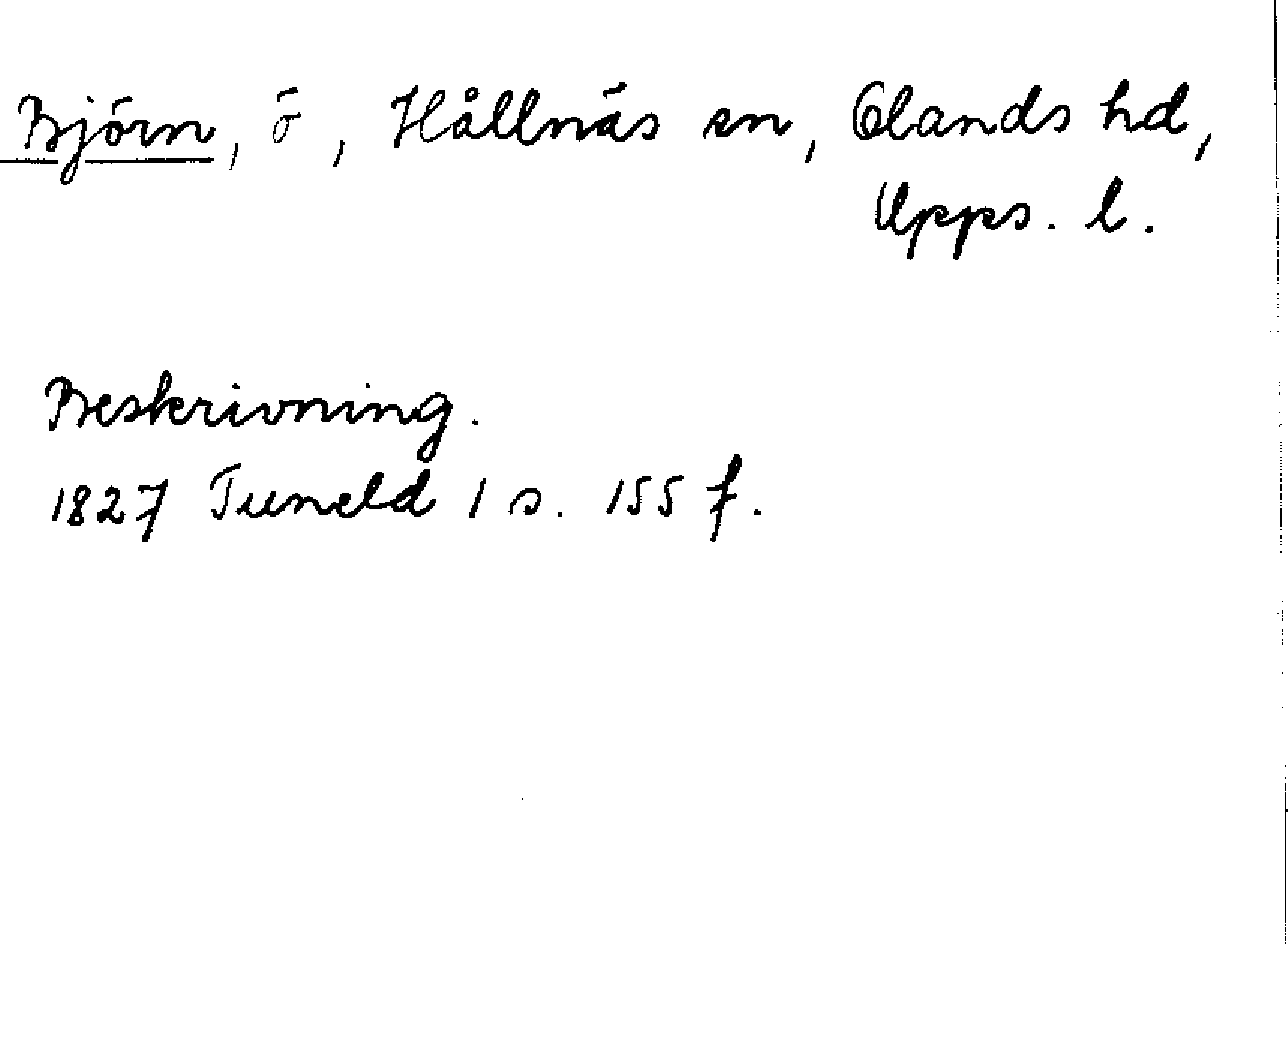 Björn, ö, Hållnäs sn, Olands hd,
Upps. l.
Beskrivning.
1827 Tuneld 1 s. 155 f.